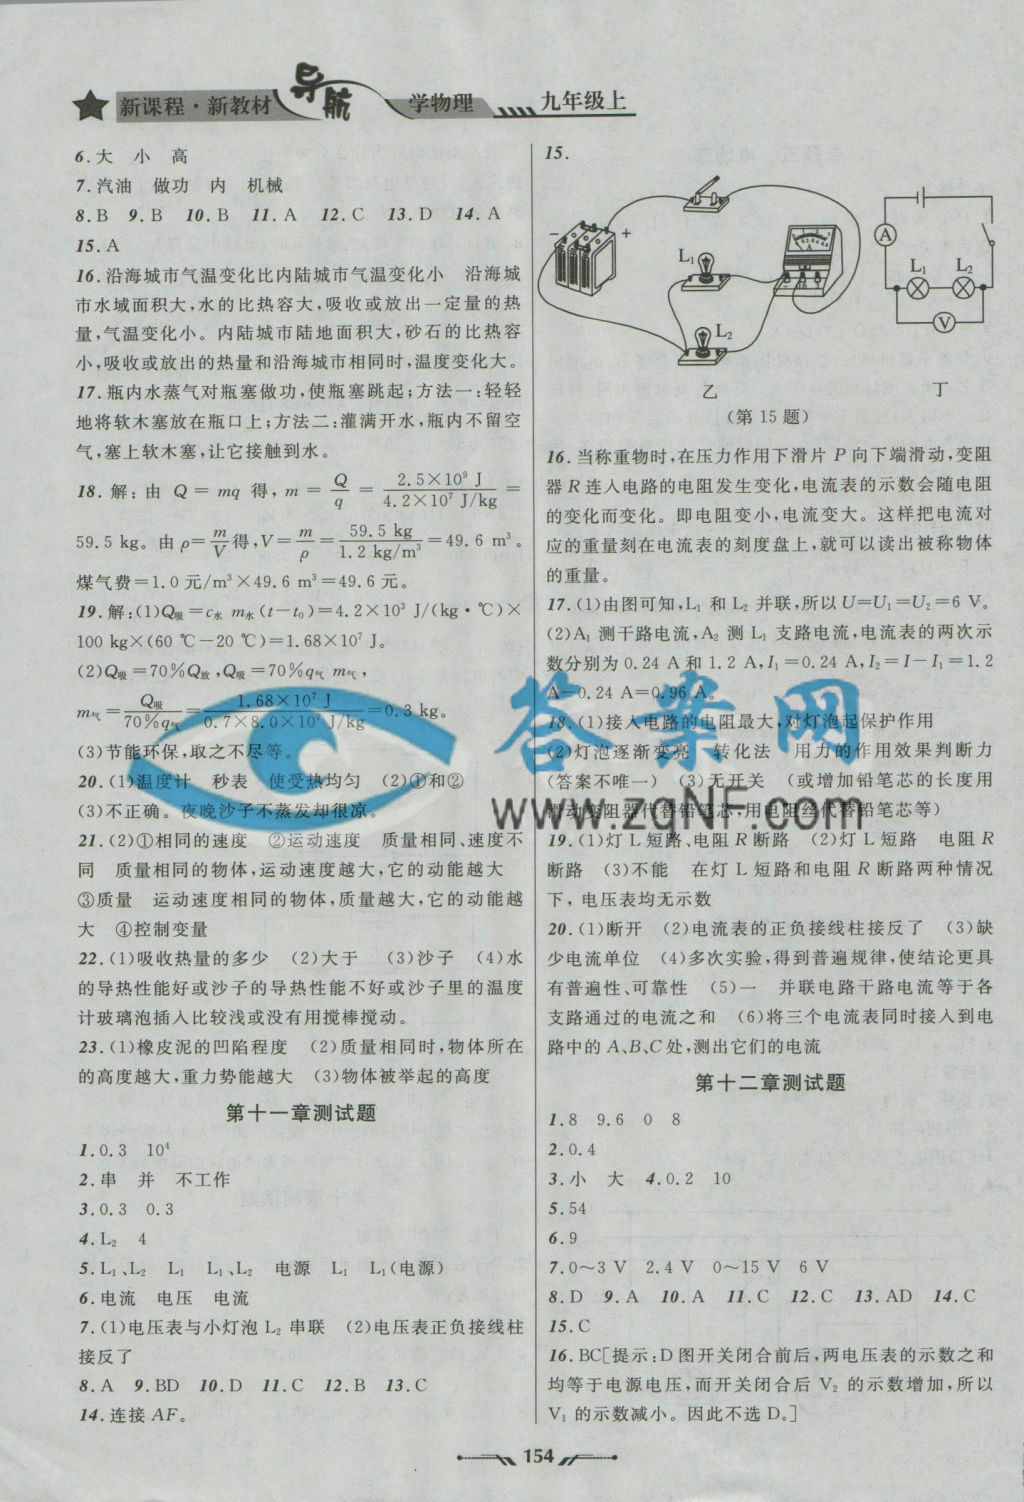 新课程·新教材 导航 学物理 九年级上
6.大 小 高
7.汽油 做功 内 机械
8.B 9.B 10.B 11.A 12.C 13.D 14.A
15.A
16.沿海城市气温变化比内陆城市气温变化小 沿海城
市水域面积大,水的比热容大,吸收或放出一定量的热
量,气温变化小。内陆城市陆地面积大,砂石的比热容
小,吸收或放出的热量和沿海城市相同时,温度变化大。
17.瓶内水蒸气对瓶塞做功,使瓶塞跳起;方法一:轻轻
地将软木塞放在瓶口上;方法二:灌满开水,瓶内不留空
气,塞上软木塞,让它接触到水。
18.解:由 Q=mq 得,m=Q/q=2.5×10⁹ J/4.2×10⁷ J/kg=
59.5 kg。由ρ=m/V得,V=m/ρ=59.5 kg/1.2 kg/m³=49.6 m³。
煤气费=1.0元/m³×49.6 m³=49.6元。
19.解:(1)Q吸=c水 m水(t-t₀)=4.2×10³ J/(kg·℃)×
100 kg×(60 ℃-20 ℃)=1.68×10⁷ J。
(2)Q吸=70%Q放,Q吸=70%q气 m气,
m气=Q吸/70%q气=1.68×10⁷ J/0.7×8.0×10⁷ J/kg=0.3 kg。
(3)节能环保,取之不尽等。
20.(1)温度计 秒表 使受热均匀 (2)①和②
(3)不正确。夜晚沙子不蒸发却很凉。
21.(2)①相同的速度 ②运动速度 质量相同、速度不
同 质量相同的物体,运动速度越大,它的动能越大
③质量 运动速度相同的物体,质量越大,它的动能越
大 ④控制变量
22.(1)吸收热量的多少 (2)大于 (3)沙子 (4)水
的导热性能好或沙子的导热性能不好或沙子里的温度
计玻璃泡插入比较浅或没有用搅棒搅动。
23.(1)橡皮泥的凹陷程度 (2)质量相同时,物体所在
的高度越大,重力势能越大 (3)物体被举起的高度
第十一章测试题
1.0.3 10⁴
2.串 并 不工作
3.0.3 0.3
4.L₂ 4
5.L₁、L₂ L₁ L₁、L₂ 电源 L₁ L₁(电源)
6.电流 电压 电流
7.(1)电压表与小灯泡 L₂ 串联 (2)电压表正负接线柱
接反了
8.A 9.BD 10.D 11.C 12.B 13.C
14.连接 AF。
15.
- +
L₁
L₂
A
A
L₁ L₂
V
乙 丁
(第 15 题)
16.当称重物时,在压力作用下滑片 P 向下端滑动,变阻
器 R 连入电路的电阻发生变化,电流表的示数会随电阻
的变化而变化。即电阻变小,电流变大。这样把电流对
应的重量刻在电流表的刻度盘上,就可以读出被称物体
的重量。
17.(1)由图可知,L₁ 和 L₂ 并联,所以U=U₁=U₂=6 V。
(2)A₁ 测干路电流,A₂ 测 L₁ 支路电流,电流表的两次示
数分别为 0.24 A 和 1.2 A,I₁=0.24 A,I₂=I-I₁=1.2
A-0.24 A=0.96 A。
18.(1)接入电路的电阻最大,对灯泡起保护作用
(2)灯泡逐渐变亮 转化法 用力的作用效果判断力
(答案不唯一) (3)无开关 (或增加铅笔芯的长度用
滑动变阻器代替铅笔芯,用电阻丝代替铅笔芯等)
19.(1)灯 L 短路、电阻 R 断路 (2)灯 L 短路 电阻 R
断路 (3)不能 在灯 L 短路和电阻 R 断路两种情况
下,电压表均无示数
20.(1)断开 (2)电流表的正负接线柱接反了 (3)缺
少电流单位 (4)多次实验,得到普遍规律,使结论更具
有普遍性、可靠性 (5)一 并联电路干路电流等于各
支路通过的电流之和 (6)将三个电流表同时接入到电
路中的 A、B、C 处,测出它们的电流
第十二章测试题
1.8 9.6 0 8
2.0.4
3.小 大 4.0.2 10
5.54
6.9
7.0～3 V 2.4 V 0～15 V 6 V
8.D 9.A 10.A 11.C 12.C 13.AD 14.C
15.C
16.BC[提示:D图开关闭合前后,两电压表的示数之和
均等于电源电压,而开关闭合后 V₂ 的示数增加,所以
V₁ 的示数减小。因此不选 D。]
答案网
www.zqNF.com
154